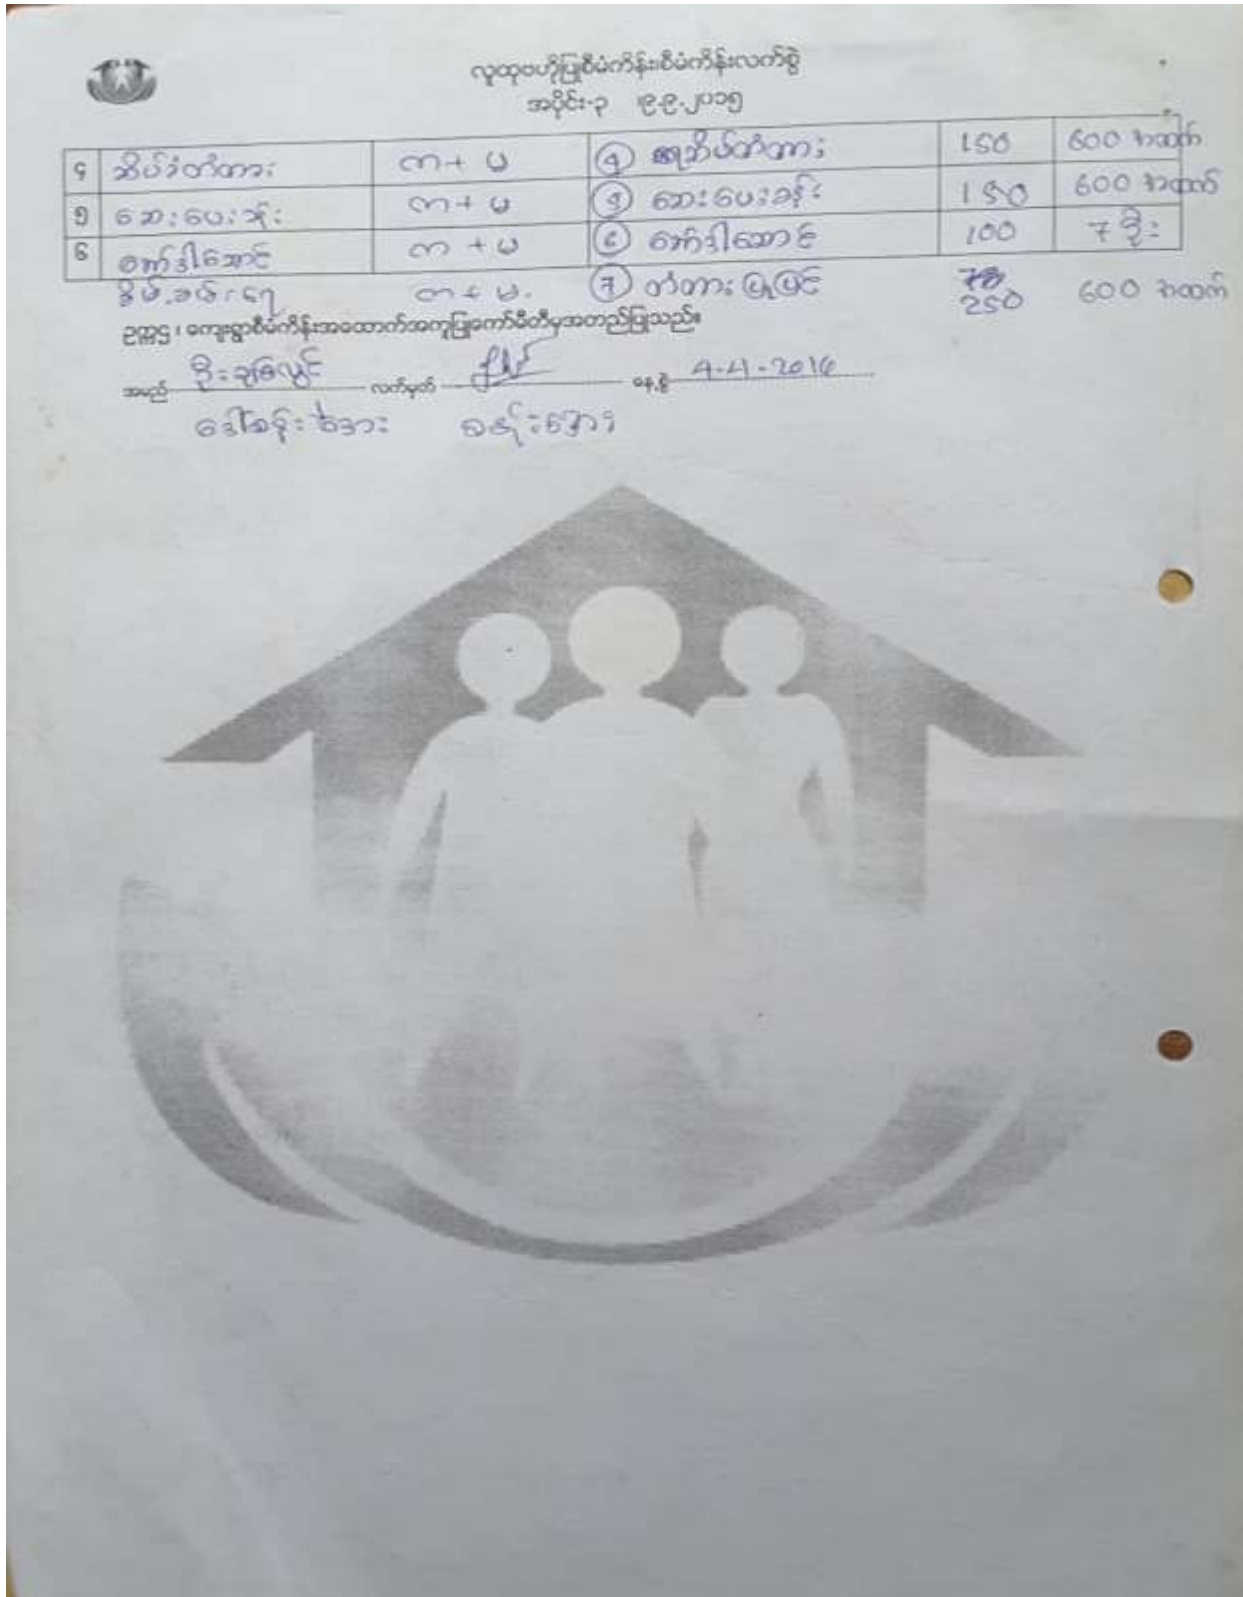 လူထုဗဟိုပြုစီမံကိန်း၊စီမံကိန်းလက်စွဲ
အပိုင်း-၃ ၊၉.၉.၂၀၁၅
၄ ဆိပ်ခံတံတား ကာ + မ ④ ဆိပ်ခံတံတား 150 600 အထက်
၅ ဆေးပေးခန်း ကာ + မ ဆေးပေးခန်း 150 600 အထက်
၆ စက်ဒါဆောင် ကာ + မ ⑥ စက်ဒါဆောင် 100 7 ဦး
ကာ + မ. ⑦ တံတားပြုပြင် 250 600 အထက်
ဥက္ကဌ ၊ ကျေးရွာစီမံကိန်းအထောက်အကူပြုကော်မီတီမှအတည်ပြုသည်။
အမည် လက်မှတ် နေ့စွဲ 4-4-2016
ဒေါ်စန်းအေး စန်းအေး